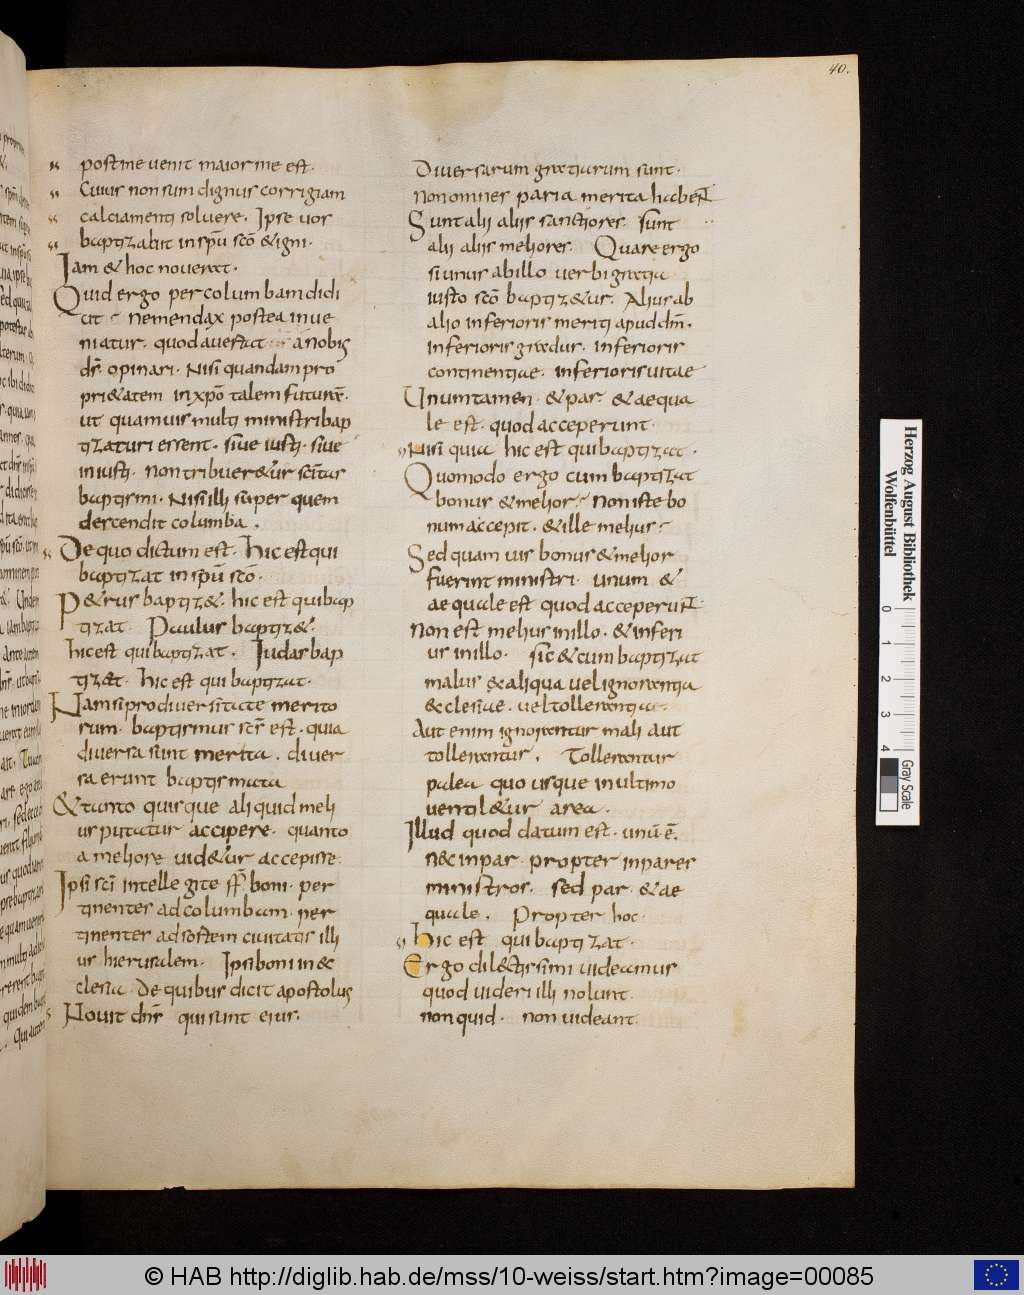 40.
postme uenit maior me est.
Cuius non sum dignus corrigiam
calciamenti soluere. Ipse uos
baptizabit in spū scō & igni.
Iam & hoc nouerat.
Quid ergo per columbam didi
cit nemendax postea inue
niatur. quod auertat a nobis
ds̄ opinari. Nisi quandam pro
pri&atem in xpō talem futurā.
ut quamuis multi ministri bap
tizaturi essent. siue iusti. siue
iniusti. non tribuer&ur sc̄itas
baptismi. Nisi illi super quem
descendit columba.
De quo dictum est. Hic est qui
baptizat in spū scō.
P&rus baptiz&. hic est qui bap
tizat. Paulus baptiz&.
hic est qui baptizat. Iudas bap
tiz&. hic est qui baptizat.
Nam si pro diuersitate merito
rum. baptismus scs̄ est. quia
diuersa sunt merita. diuer
sa erunt baptismata
& tanto quisque aliquid meli
us putatur accipere. quanto
a meliore uid&ur accepisse.
Ipsi sci intellegite fr̄ boni. per
tinentes ad columbam. per
tinentes ad sortem ciuitatis illi
us hierusalem. Ipsi boni in &c
clesia. De quibus dicit apostolus
Nouit dn̄s qui sunt eius.
Diuersarum gratiarum sunt.
Non omnes paria merita habent
Sunt alii aliis sanctiores. sunt
alii aliis meliores. Quare ergo
si unus ab illo uerbi gratia
iusto scō baptiz&ur. Alius ab
alio inferioris meriti apud dm̄.
inferioris gradus. inferioris
continentiae. inferioris uitae
Unum tamen & par & aequa
le est. quod acceperunt.
Nisi quia hic est qui baptizat.
Quomodo ergo cum baptizat
bonus & melior. Non iste bo
num accepit. & ille melius
Sed quam uis bonus & melior
fuerint ministri. unum &
aequale est quod acceperunt.
Non est melius in illo. & inferi
us in illo. sic & cum baptizat
malus & aliqua uel ignorantia
&cclesiae. uel tollerantia.
Aut enim ignorantur mali aut
tollerantur. Tollerantur
palea quo usque in ultimo
uentil&ur area.
Illud quod datum est. unū ē.
n&c inpar. propter inpares
ministros. sed par. & ae
quale. Propter hoc.
Hic est qui baptizat.
Ergo dil&tissimi uideamus
quod uideri illi nolunt.
non quid. non uideant.
Herzog August Bibliothek
Wolfenbüttel
0 1 2 3 4
Gray Scale
© HAB http://diglib.hab.de/mss/10-weiss/start.htm?image=00085